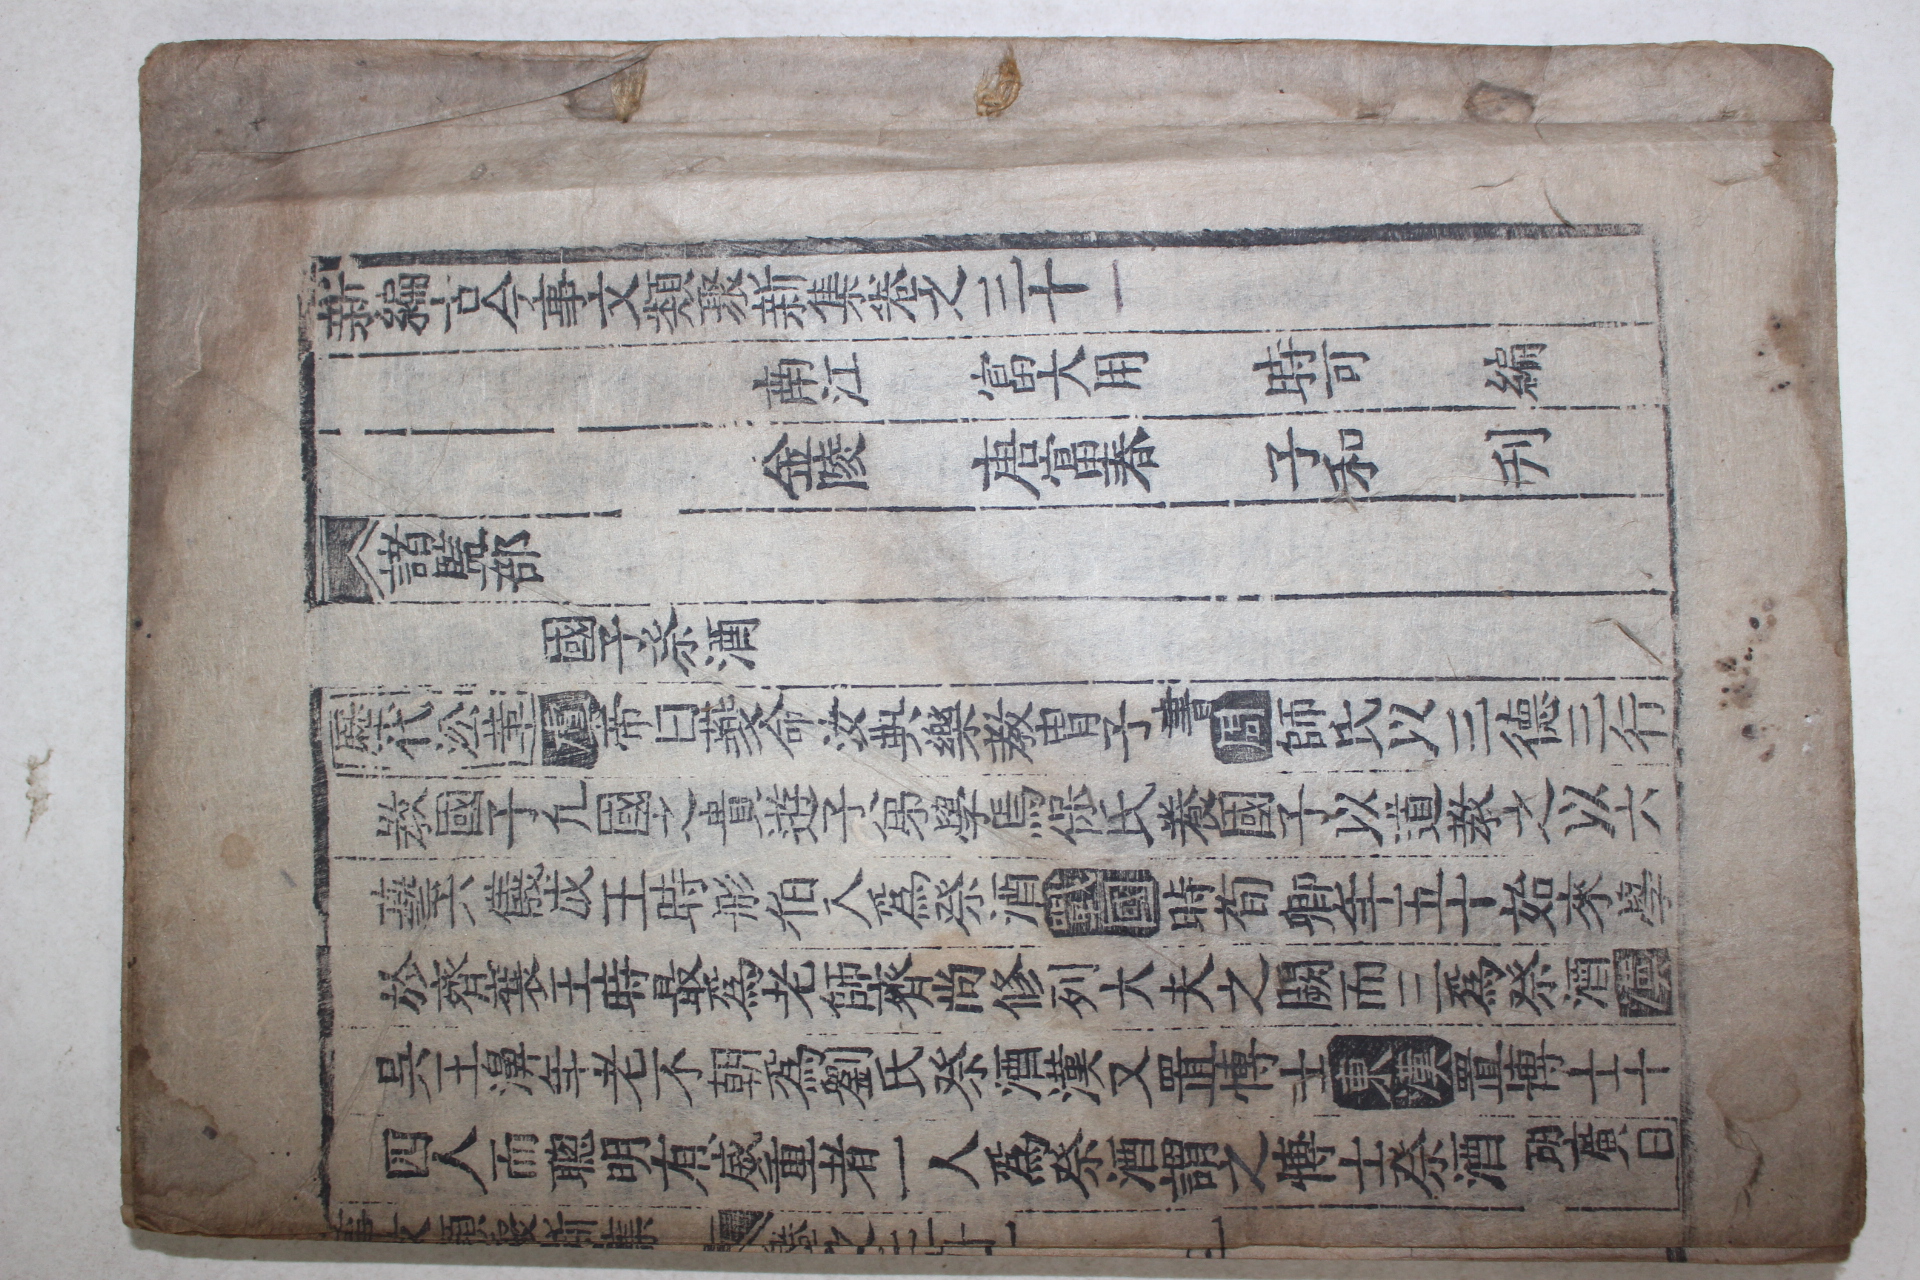 新編古今事文類聚新集卷之三十一
南江 富大用 時可 編
金陵 唐富春 子和 刋
諸監部
國子祭酒
歷代沿革 虞 帝曰夔命汝典樂教冑子書 周 師氏以三德三行
教國子凢國之貴遊子弟學焉保氏養國子以道教之以六
藝六儀成王時彤伯入爲祭酒 戰國 時荀卿年五十始來學
於齊襄王時最爲老師齊尚修列大夫之闕而三爲祭酒 漢
吳王濞年老不朝爲劉氏祭酒漢又置博士 東漢 置博士十
四人而聰明有威重者一人爲祭酒謂之博士祭酒 胡廣曰
事文類聚新集 卷之三十一 一